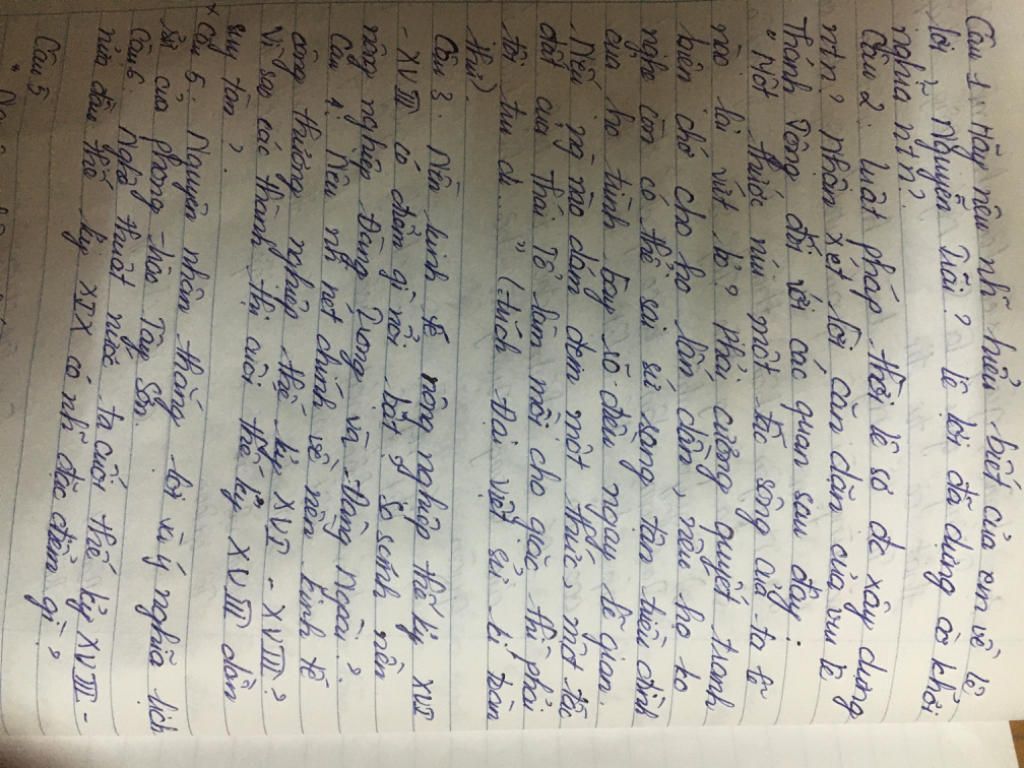 Câu 1. Hãy nêu nh~ hiểu biết của em về lê
lợi và Nguyễn Trãi? lê lợi đã dựng cờ khởi
nghĩa ntn?
Câu 2. luật pháp thời lê sơ đc xây dựng
ntn? Nhận xét lời căn dặn của vua lê
Thánh Tông đối với các quan sau đây:
" Một thước núi một tấc sông của ta lẽ
nào lại vứt bỏ? Phải cương quyết tranh
biện chớ cho họ lấn dần, nếu họ ko
nghe còn có thể sai sứ sang tận triều đình
của họ trình bày rõ điều ngay lẽ gian.
Nếu ng nào dám đem một thước, một tấc
đất của Thái Tổ làm mồi cho giặc thì phải
tội tru di. " (trích Đại việt sử kí toàn
thư).
Câu 3. Nền kinh tế nông nghiệp thế kỷ XVI
- XVIII có điểm gì nổi bật? So sánh nền
nông nghiệp Đàng Trong và Đàng Ngoài?
Câu 4. Nêu nh~ nét chính về nền kinh tế
công thương nghiệp thế kỷ XVI - XVIII?
Vì sao các thành thị cuối thế kỷ XVIII dần
suy tàn?
x Câu 5. Nguyên nhân thắng lợi và ý nghĩa lịch
sử của phong - trào Tây Sơn.
Câu 6. Nghệ thuật nước ta cuối thế kỷ XVIII -
nửa đầu thế kỷ XIX có nh~ đặc điểm gì?
Câu 5